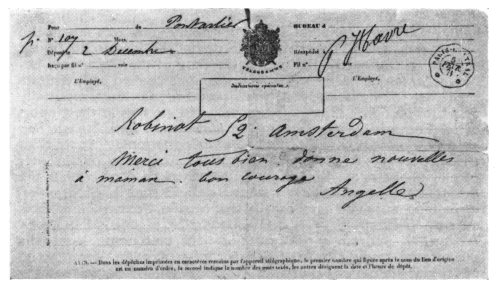 Pour de Pontarlier BUREAU d
p. N° 107 Mots. P. Havre
Dépose 2 Decembre Réexpédié à
Reçu par fil n° voie Fil n° voie
TÉLÉGRAMME
L'Employé, L'Employé,
Indications spéciales :
Robinot 52 Amsterdam
Merci tous bien donne nouvelles
à maman. bon courage
Angelle
N.B. — Dans les dépêches imprimées en caractères romains par l'appareil télégraphique, le premier nombre qui figure après le nom du lieu d'origine
est un numéro d'ordre, le second indique le nombre des mots taxés, les autres désignent la date et l'heure de dépôt.